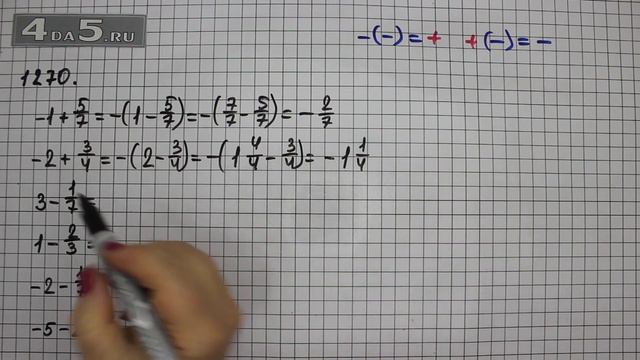 4DA5.RU
-(-)=+ +(-)=-
1270.
-1+5/7=-(1-5/7)=-(7/7-5/7)=-2/7
-2+3/4=-(2-3/4)=-(1 4/4-3/4)=-1 1/4
3-1/7=
1-2/3=
-2-
-5-